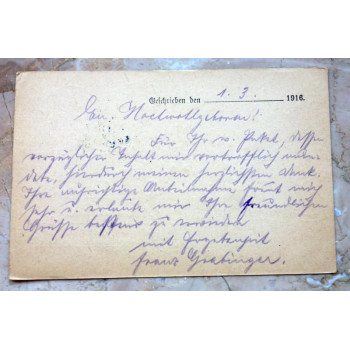 Geschrieben den 1. 3. 1916.
Eu. Hochwohlgeboren!
Für Ihr w. Paket, dessen
vorzüglicher Inhalt mir vortrefflich mun-
dete, hierdurch meinen herzlichsten Dank.
Ihre aufrichtige Anteilnahme freut mich
sehr u. erlaube mir Ihre freundlichen
Grüsse bestens zu erwidern
mit Ergebenheit
Franz Grabinger.